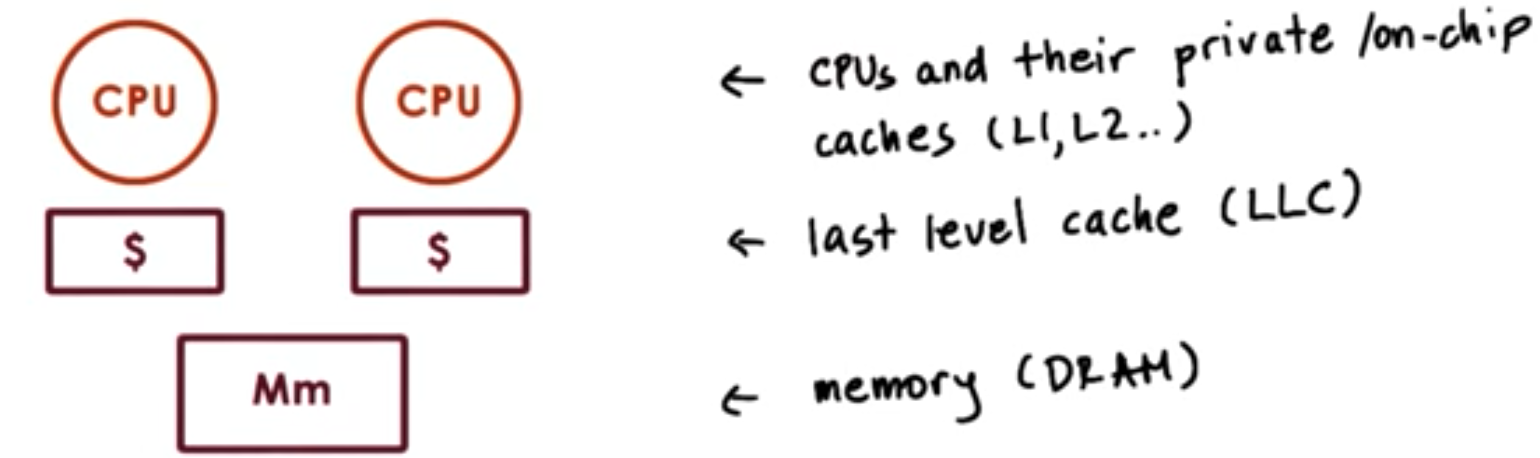 CPU CPU
← CPUs and their private /on-chip
caches (L1,L2..)
$ $
← last level cache (LLC)
Mm
← memory (DRAM)